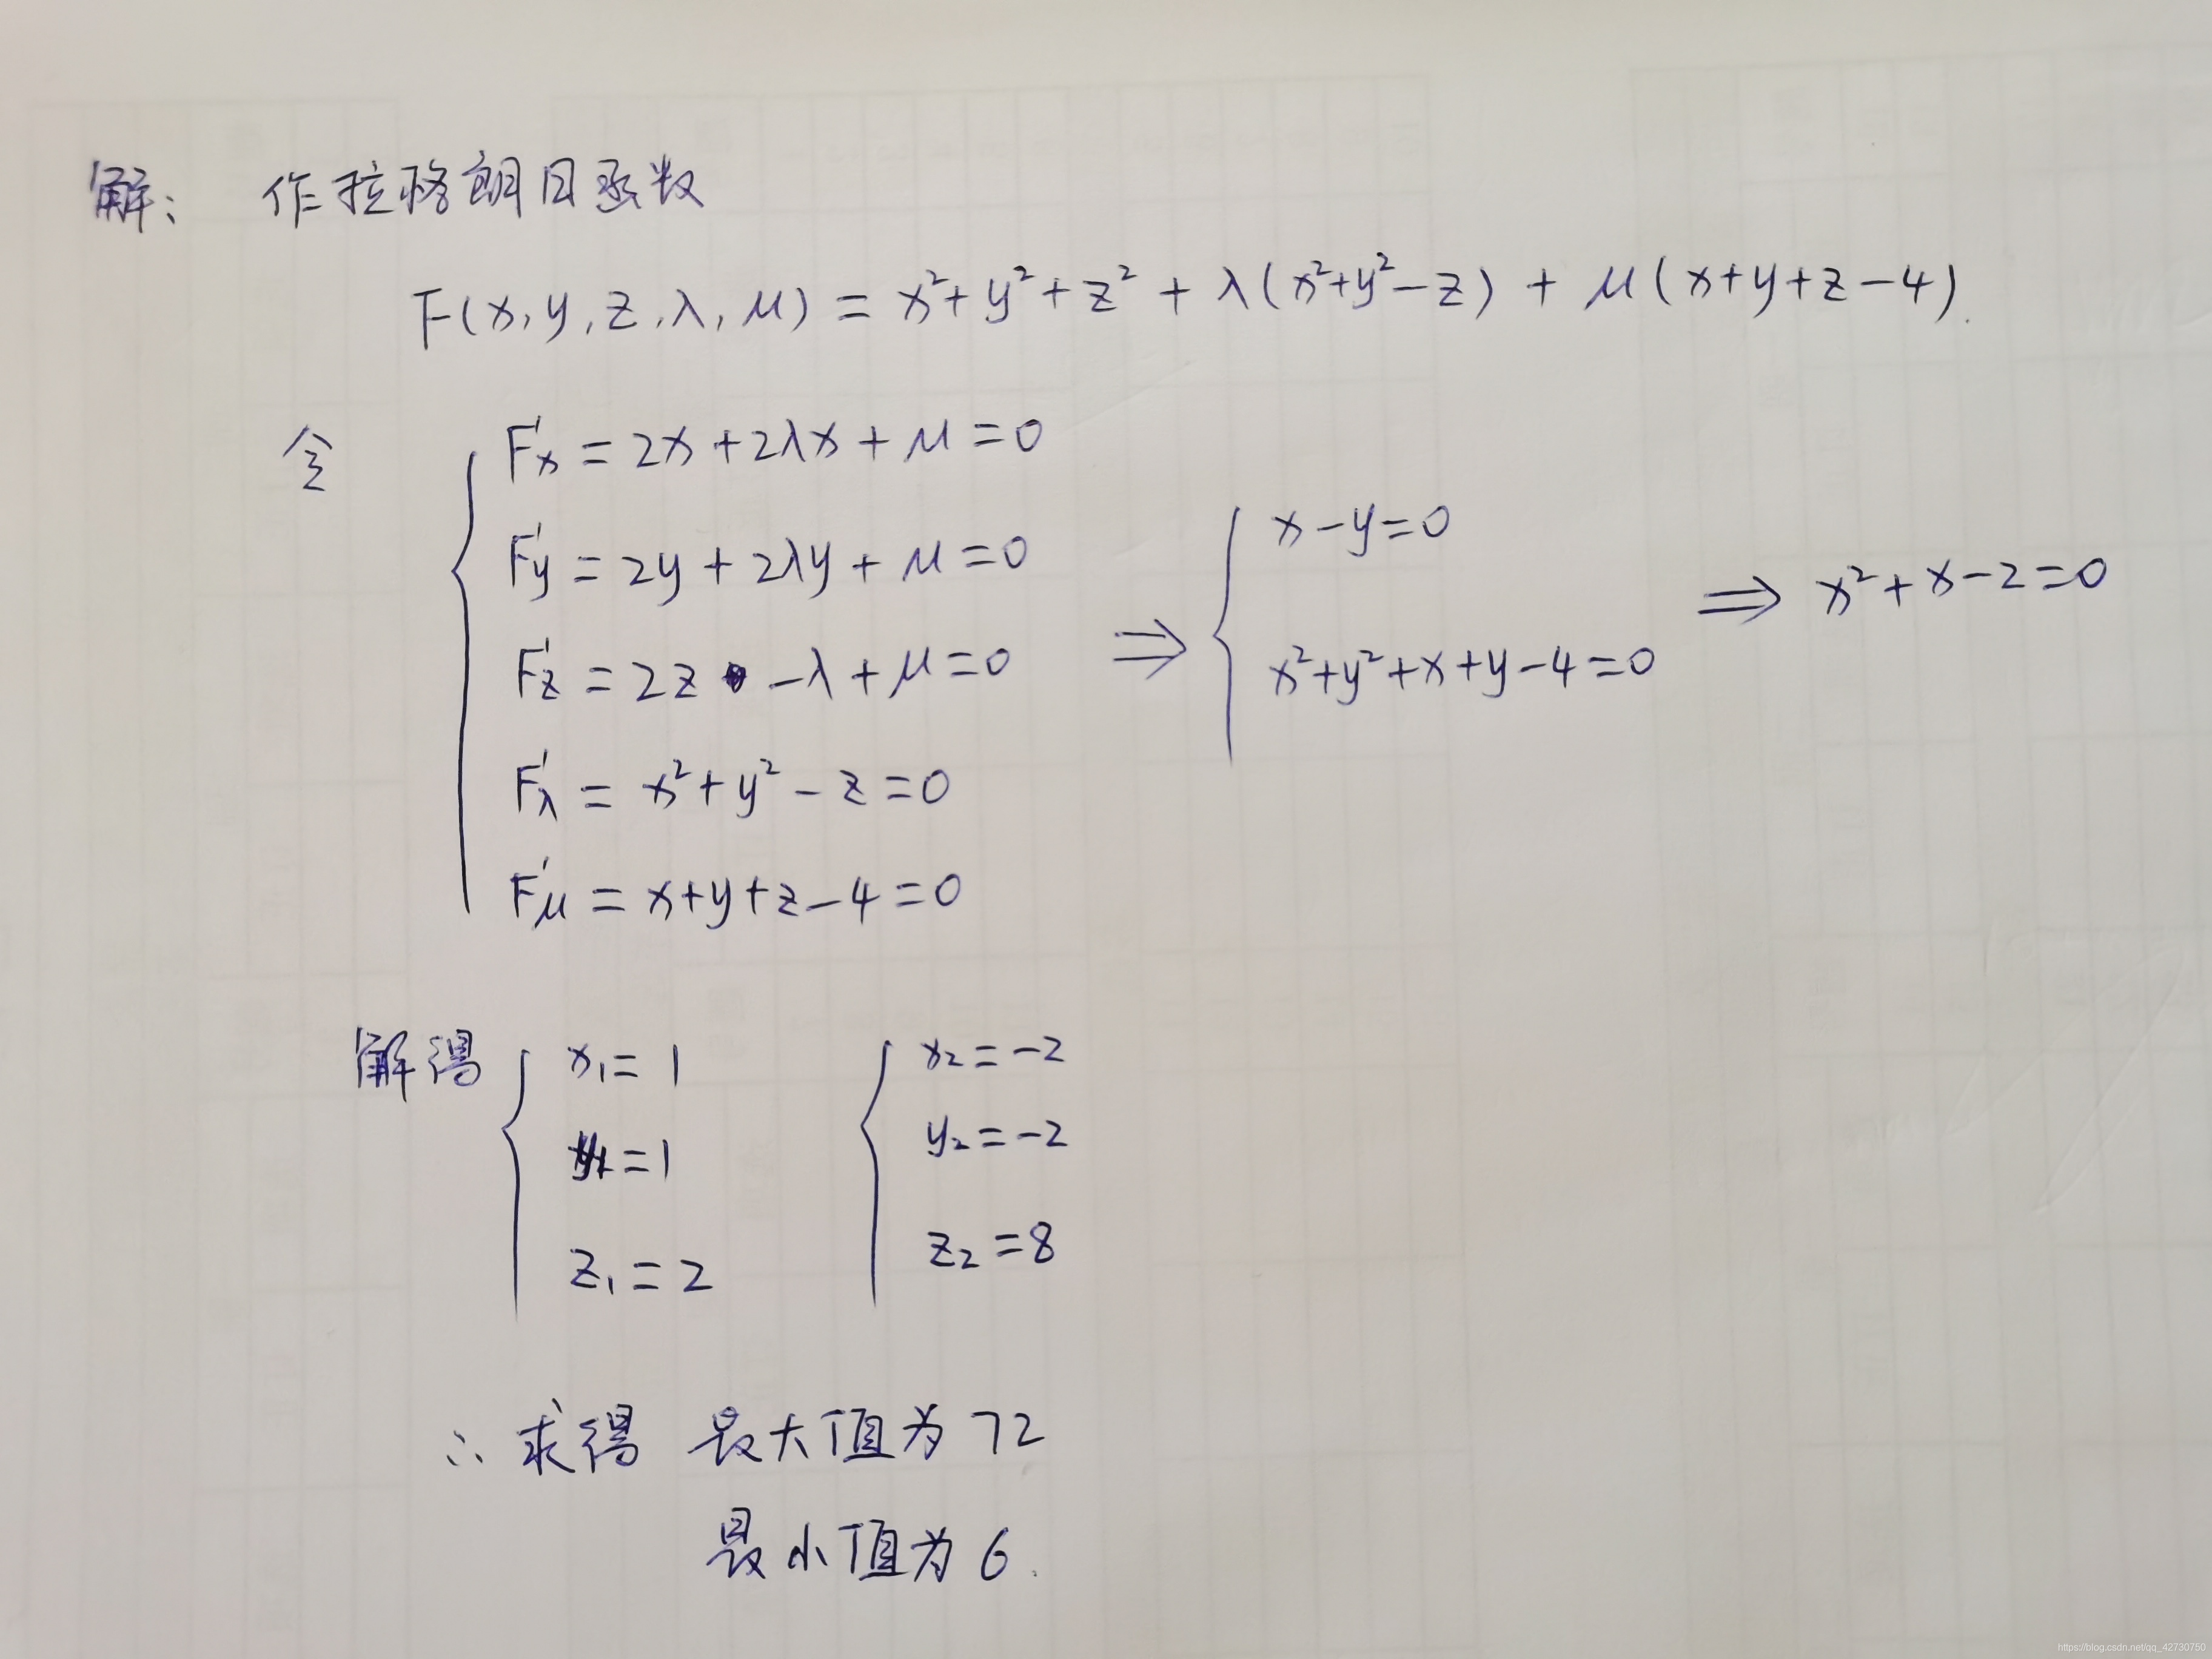 解: 作拉格朗日函数
F(x, y, z, λ, μ) = x²+y²+z² + λ(x²+y²-z) + μ(x+y+z-4).
令
F'x = 2x+2λx+μ=0
F'y = 2y+2λy+μ=0
F'z = 2z -λ+μ=0
F'λ = x²+y²-z=0
F'μ = x+y+z-4=0
⇒
x-y=0
x²+y²+x+y-4=0
⇒ x²+x-2=0
解得
x₁=1
y₁=1
z₁=2
x₂=-2
y₂=-2
z₂=8
∴ 求得 最大值为 72
最小值为 6.
https://blog.csdn.net/qq_42730750